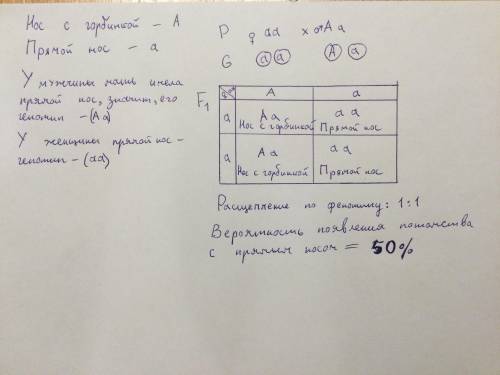 Нос с горбинкой – А
Прямой нос – а
У мужчины мать имела
прямой нос, значит, его
генотип – (Аа)
У женщины прямой нос –
генотип – (аа)
P ♀ аа x ♂Аа
G а а А а
F1
А а
а Аа аа
Нос с горбинкой Прямой нос
а Аа аа
Нос с горбинкой Прямой нос
Расщепление по фенотипу: 1:1
Вероятность появления потомства
с прямым носом = 50%